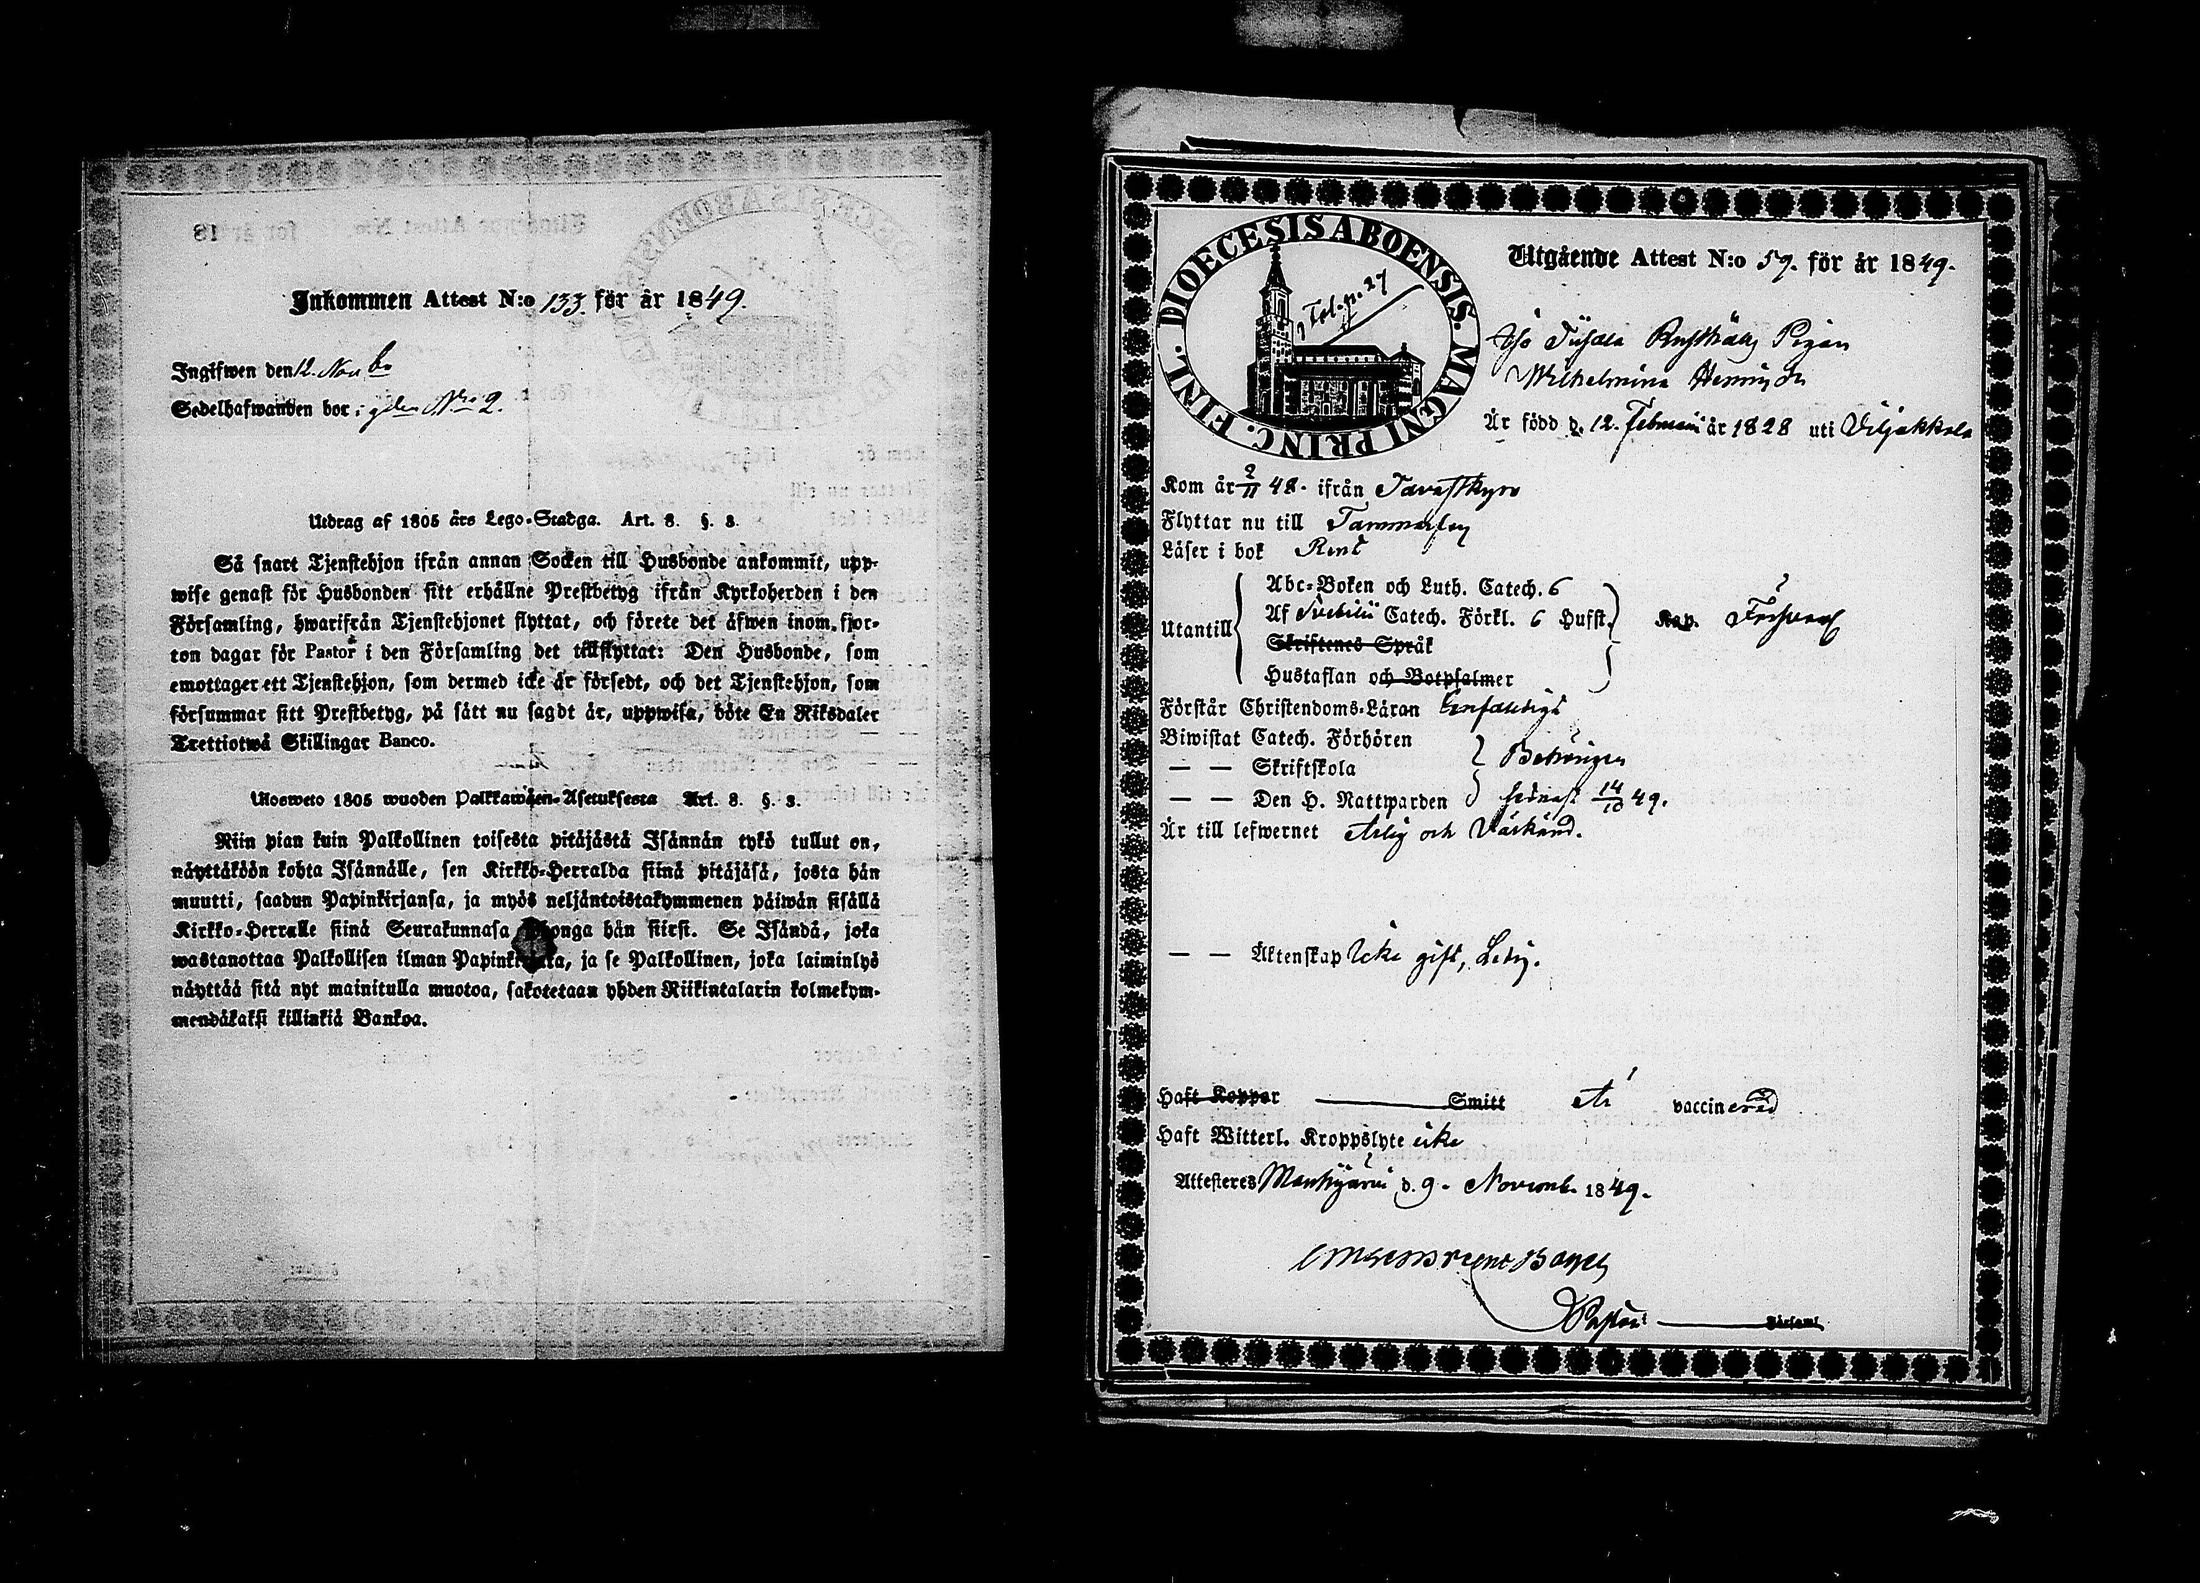 Inkommen Attest N:o 133. för år 1849.
Ingifwen den 12. Novbr
Sedelhafwanden bor i gden N:o 2.
Utdrag af 1805 års Lego-Stadga. Art. 8. §. 3.
Så snart Tjenstehjon ifrån annan Socken till Husbonde ankommit, upp-
wise genast för Husbonden sitt erhållne Prestbetyg ifrån Kyrkoherden i den
Församling, hwarifrån Tjenstehjonet flyttat, och förete det äfwen inom fjor-
ton dagar för Pastor i den Församling det tillflyttat: Den Husbonde, som
emottager ett Tjenstehjon, som dermed icke är försedt, och det Tjenstehjon, som
försummar sitt Prestbetyg, på sätt nu sagdt är, uppwisa, böte En Riksdaler
Trettiotwå Skillingar Banco.
Ulosweto 1805 wuoden Palkkawäen-Asetuksesta Art. 8. §. 3.
Niin pian kuin Palkollinen toisesta pitäjästä Isännän tykö tullut on,
näyttäköön kohta Isännälle, sen Kirkko-Herralda siinä pitäjäsä, josta hän
muutti, saadun Papinkirjansa, ja myös neljäntoistakymmenen päiwän sisällä
Kirkko-Herralle siinä Seurakunnasa hän siirsi. Se Isändä, joka
wastanottaa Palkollisen ilman ja se Palkollinen, joka laiminlyö
näyttää sitä nyt mainitulla muotoa, sakotetaan yhden Riikintalarin kolmekym-
mendäkaksi killinkiä Bankoa.
DIOECESIS ABOENSIS. MAGNI PRINC. FINL.
Fol. 27
Utgående Attest N:o 59. för år 1849.
Rusthålls Pigan
Wilhelmina
Är född d. 12. Februari år 1828 uti Viljakkala
Kom år 2/11 48. ifrån Tavastkyro
Flyttar nu till Tammerfors
Läser i bok Rent
Abc-Boken och Luth. Catech. 6
Utantill Af Svebilii Catech. Förkl. 6 Hufst. Kap. Försvarl
Skriftenes Språk
Hustaflan och Botpsalmer
Förstår Christendoms-Läran Enfaldigt
Biwistat Catech. Förhören
— — Skriftskola Behörigen
— — Den H. Nattwarden senast 14/10 49.
Är till lefwernet Ärlig och Välkänd.
— — Äktenskap Icke gift, Ledig.
Haft Koppor Smitt Är vaccinerad
Haft Witterl. Kroppslyte icke
Attesteras Mouhijärvi d. 9. Novemb. 1849.
Pastor Församl